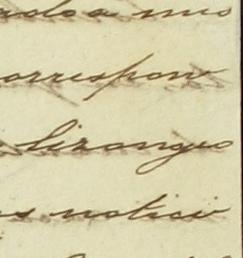 rdo a mis
correspon
Liranges
s notici